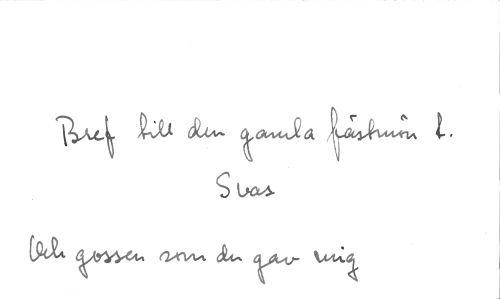 Bref till den gamla fästmön 2.
Svas
Och gossen som du gav mig